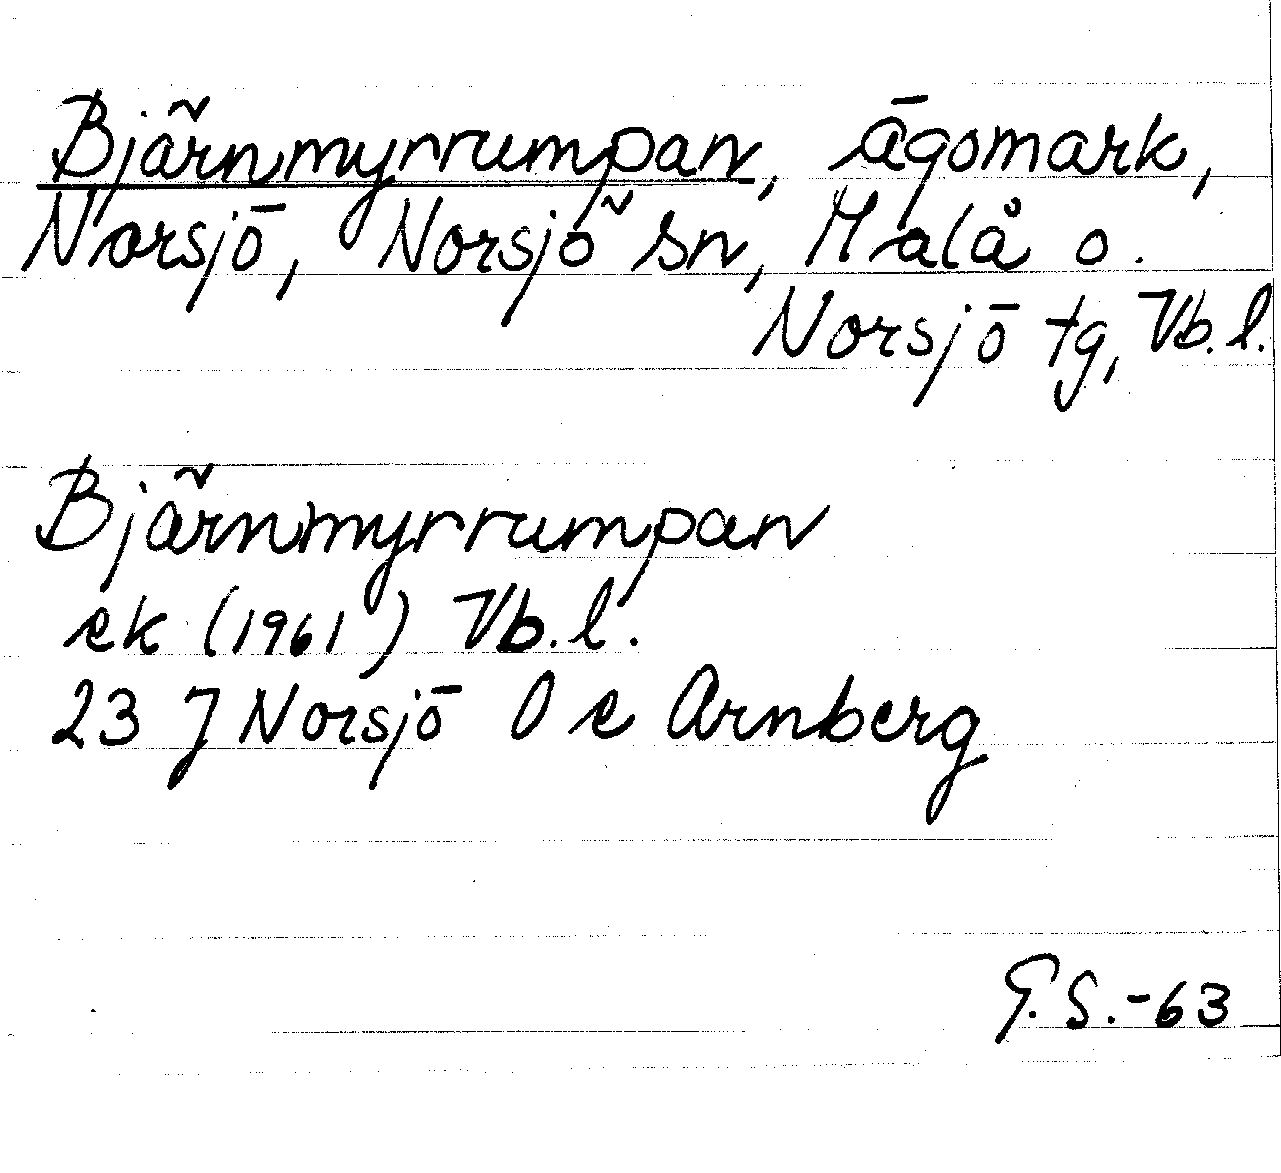 Bjärnmyrrumpan, ägomark,
Norsjö, Norsjö sn, Malå o.
Norsjö tg, Vb. l.
Bjärnmyrrumpan
ek (1961) Vb. l.
23 J Norsjö O e Arnberg
G. S. -63